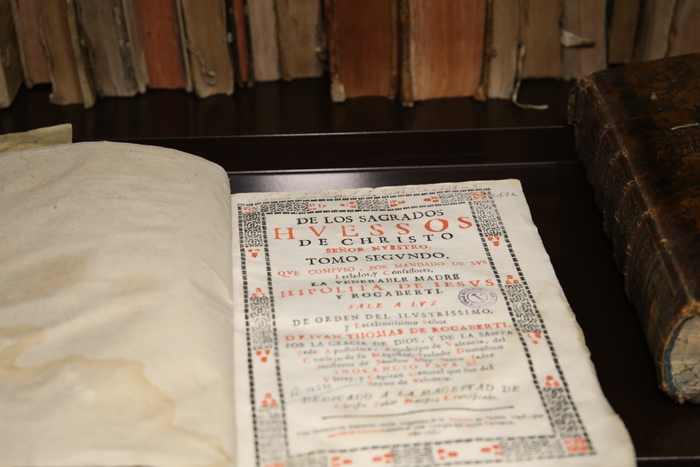 DE LOS SAGRADOS
HVESSOS
DE CHRISTO
SEÑOR NUESTRO,
TOMO SEGVNDO,
QVE COMPVSO, POR MANDADO DE SVS
Prelados, y Confessores,
LA VENERABLE MADRE
HIPOLITA DE IESVS
Y ROCABERTI.
SALE A LVZ
DE ORDEN DEL ILVSTRISSIMO,
y Excelentissimo Señor
D.F.IVAN THOMAS DE ROCABERTI,
POR LA GRACIA DE DIOS, Y DE LA SANTA
Sede Apostolica, Arçobispo de Valencia, del
Consejo de su Magestad, Prelado Domestico
INOCENCIO PAPA
Virrey, y Capitan General que fue del
Reyno de Valencia.
DEDICADO A LA MAGESTAD DE
Christo Señor Nuestro Crucificado.